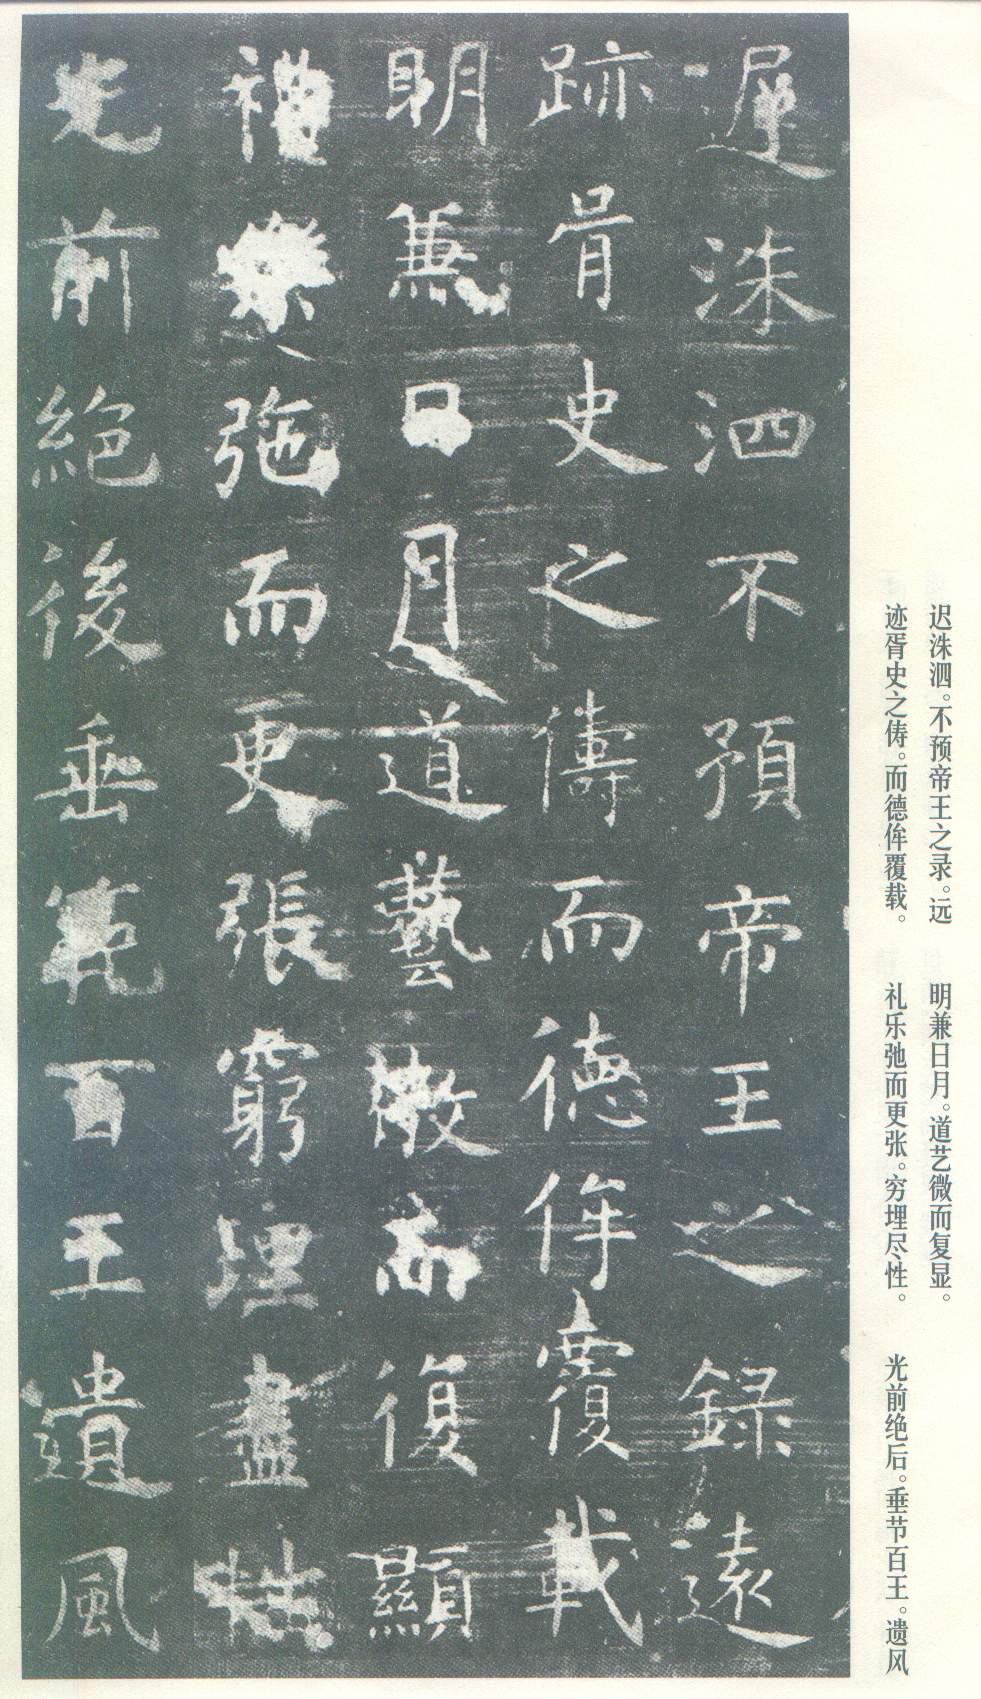 迟洙泗。不预帝王之录。远
迹胥史之俦。而德侔覆载。
明兼日月。道艺微而复显。
礼乐弛而更张。穷埋尽性。
光前绝后。垂节百王。遗风
遲洙泗不預帝王之錄遠
跡胥史之儔而德侔覆載
明兼日月道藝微而復顯
禮樂弛而更張窮理盡性
光前絕後垂範百王遺風